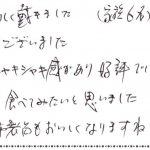 しく戴きました (家族6名)
ございました
ャキシャキ感があり好評で
食べてみたいと思いました
もおいしくなりますね